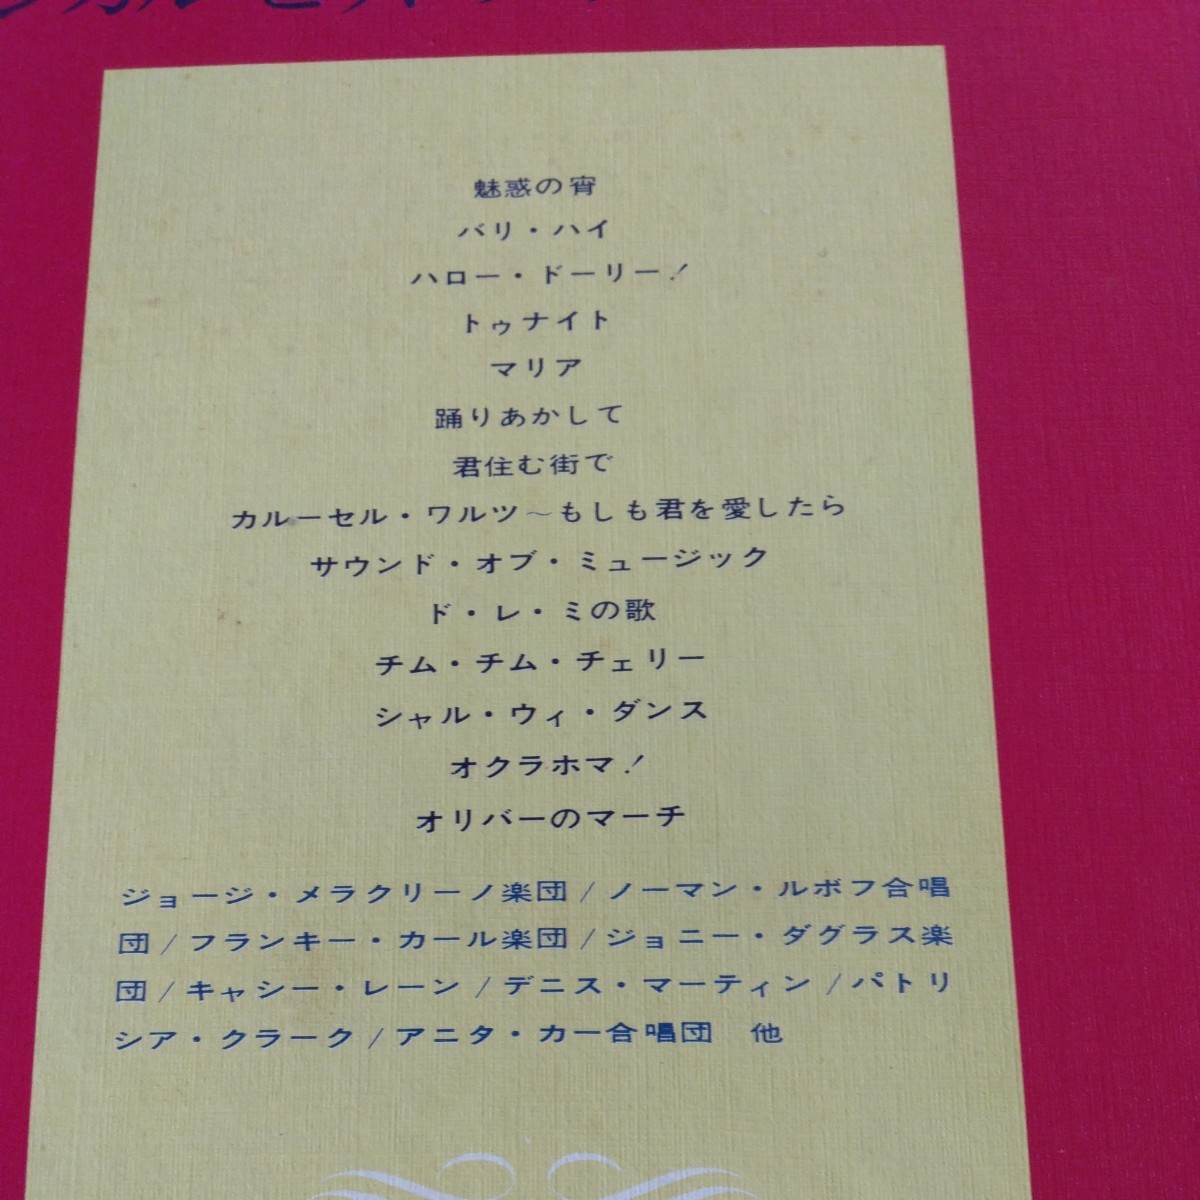 魅惑の宵
バリ・ハイ
ハロー・ドーリー!
トゥナイト
マリア
踊りあかして
君住む街で
カルーセル・ワルツ～もしも君を愛したら
サウンド・オブ・ミュージック
ド・レ・ミの歌
チム・チム・チェリー
シャル・ウィ・ダンス
オクラホマ!
オリバーのマーチ
ジョージ・メラクリーノ楽団/ノーマン・ルボフ合唱
団/フランキー・カール楽団/ジョニー・ダグラス楽
団/キャシー・レーン/デニス・マーティン/パトリ
シア・クラーク/アニタ・カー合唱団 他